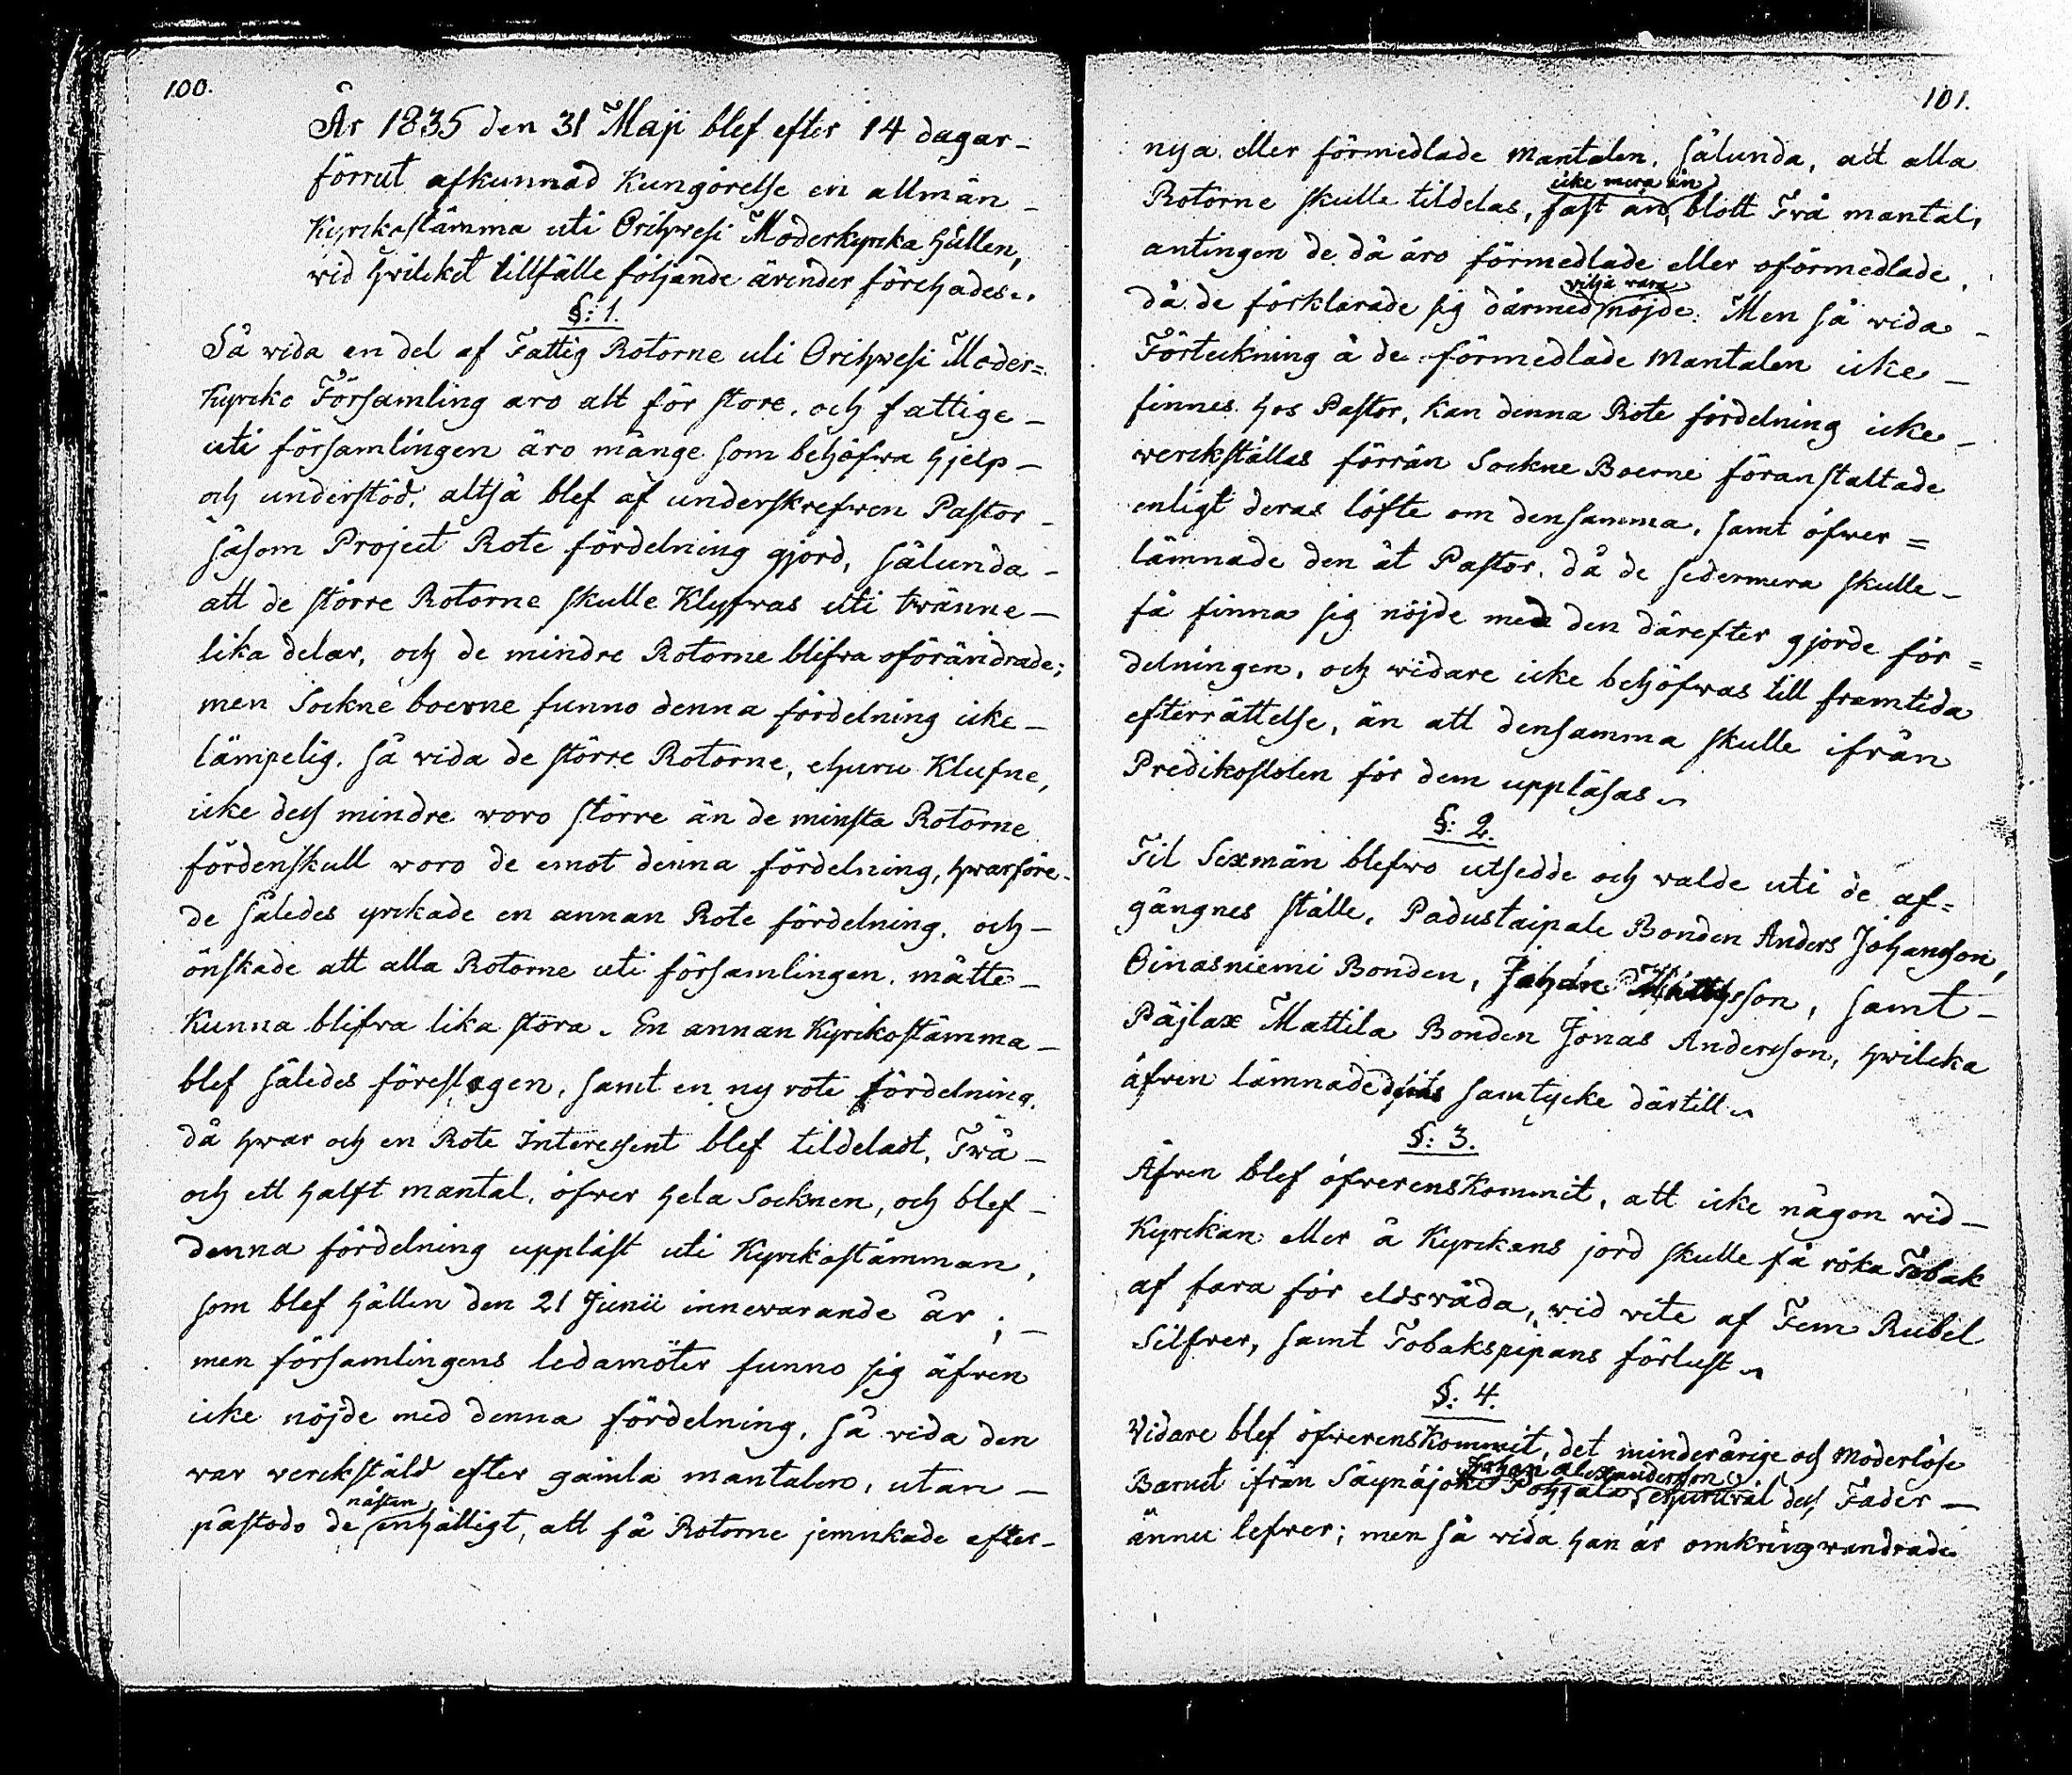 100.
År 1835 den 31 Maji blef efter 14 dagar
förrut afkunnad Kungörelse en allmän
Kyrckostämma uti Orihvesi Moderkyrcka hållen,
vid hvilcket tillfälle följande ärender förehades.
§: 1.
Så vida en del af Fattig Rotorne uti Orihvesi Moder=
Kyrcko Församling äro alt för store, och fattige
uti församlingen äro månge som behöfwa hjelp
och understöd, altså blef af underskrefwen Pastor
såsom Project Rote fördelning gjord, sålunda
att de större Rotorne skulle Klyfwas uti tvänne
lika delar, och de mindre Rotorne blifva oförändrade;
men Sockne boerne funno denna fördelning icke
lämpelig, så vida de större Rotorne, ehuru Klufne,
icke dess mindre voro större än de minsta Rotorne
fördenskull voro de emot denna fördelning, hvarföre
de således yrckade en annan Rote fördelning, och
önskade att alla Rotorne uti församlingen måtte
Kunna blifva lika stora. En annan Kyrckostämma
blef således föreslagen, samt en ny rote fördelning,
då hvar och en Rote Interessent blef tildeladt, Två
och ett halft mantal, öfver hela Socknen, och blef
denna fördelning uppläst uti Kyrckostämman,
som blef hållen den 21 Junii innevarande år;
men församlingens ledamöter funno sig äfven
icke nöjde med denna fördelning, så vida den
var verckstäld efter gamla mantalen, utan
nästan
påstodo de enhälligt, att få Rotorne jemnkade efter
101.
nya eller förmedlade mantalen, sålunda, att alla
icke mera än
Rotorne skulle tildelas, fast än blott Två mantal,
antingen de då äro förmedlade eller oförmedlade,
vilja vara
då de förklarade sig därmed nöjde. Men så vida
Förteckning å de förmedlade mantalen icke
finnes hos Pastor, kan denna Rote fördelning icke
verckställas förrän Sockne Boerne föranstaltade
enligt deras löfte om densamma, samt öfver=
lämnade den åt Pastor, då de sedermera skulle
få finna sig nöjde med den därefter gjorde för=
delningen, och vidare icke behöfvas till framtida
efterrättelse, än att densamma skulle ifrån
Predikostolen för dem uppläsas
§: 2.
Til Sexmän blefvo utsedde och valde uti de af=
gångnes ställe, Padustaipale Bonden Anders Johansson,
Oinasniemi Bonden, Johan Mattsson, samt
Päjlax Mattila Bonden Jonas Andersson, hvilcka
äfven lämnade samtycke därtill
§: 3.
Äfven blef öfverenskommit, att icke någon vid
Kyrckan eller å Kyrckans jord skulle få röka Tobak
af fara för eldsvåda, vid vite af Fem Rubel
Silfver, samt Tobakspipans förlust
§: 4.
Vidare blef öfverenskommit, det minderårige och moderlöse
Johan Alexandersson
Barnet ifrån Säynäjoki Pohjala, ehuruväl dess Fader
ännu lefver; men så vida han är omkringvandrade